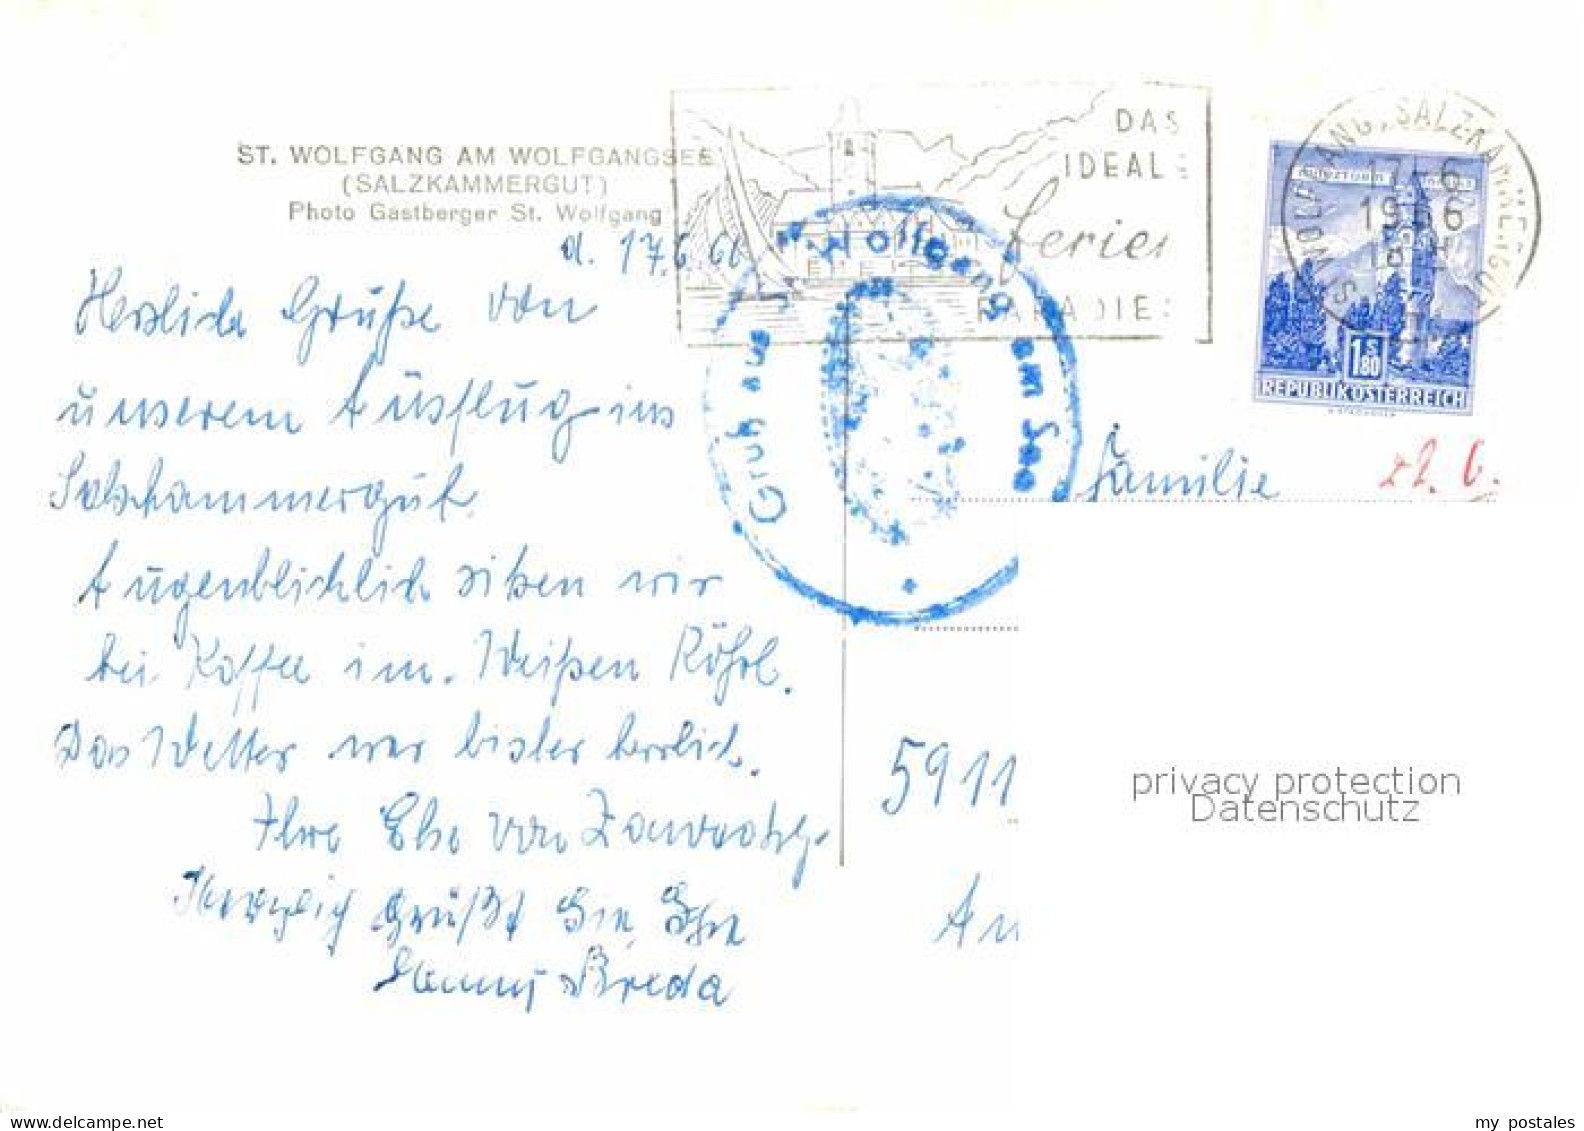 ST. WOLFGANG AM WOLFGANGSEE
(SALZKAMMERGUT)
Photo Gastberger St. Wolfgang
d. 17.6.66
Herzliche Grüße von
unserem Ausflug ins
Salzkammergut.
Augenblicklich sitzen wir
bei Kaffee im Weißen Rößl.
Das Wetter war bisher herrlich.
Ihre Else von
Herzlich grüßt Sie Ihre
Breda
DAS
IDEALE
Ferien
PARADIES
Gruß aus St. Wolfgang am See
ST. WOLFGANG, SALZKAMMERGUT
17.-6.
1966
1.80 S
REPUBLIK ÖSTERREICH
Familie
22. 6.
5911
An
privacy protection
Datenschutz
my postales